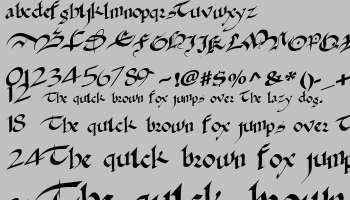 abcdefghijklmnopqrstuvwxyz
0123456789 ~!@#$%^&*()-_+
12 The quick brown fox jumps over the lazy dog.
18 The quick brown fox jumps over the
24 The quick brown fox jump
The quick brown